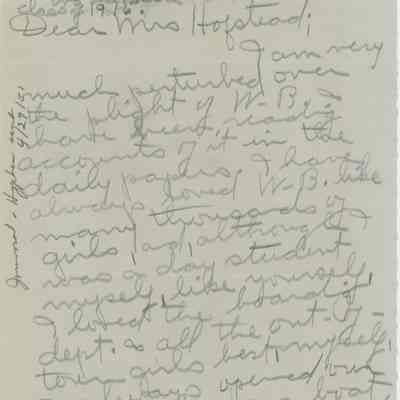 class of 1916.
Dear Mrs Hofstead;
I am very
much perturbed over
the plight of W-B. I
have been reading
accounts of it in the
daily papers. I have
always loved W-B. like
many thousands of
girls, and, although I
was a day student
myself, like yourself,
I loved the boarding
dept. & all the out-of-
town girls best, myself,
always opened, our
boat,
4/29/51